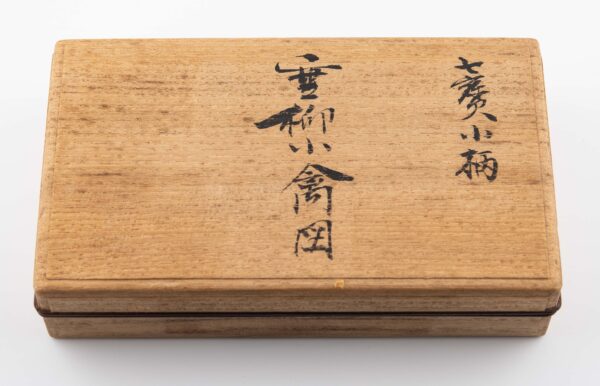 七小柄
垂柳小禽図